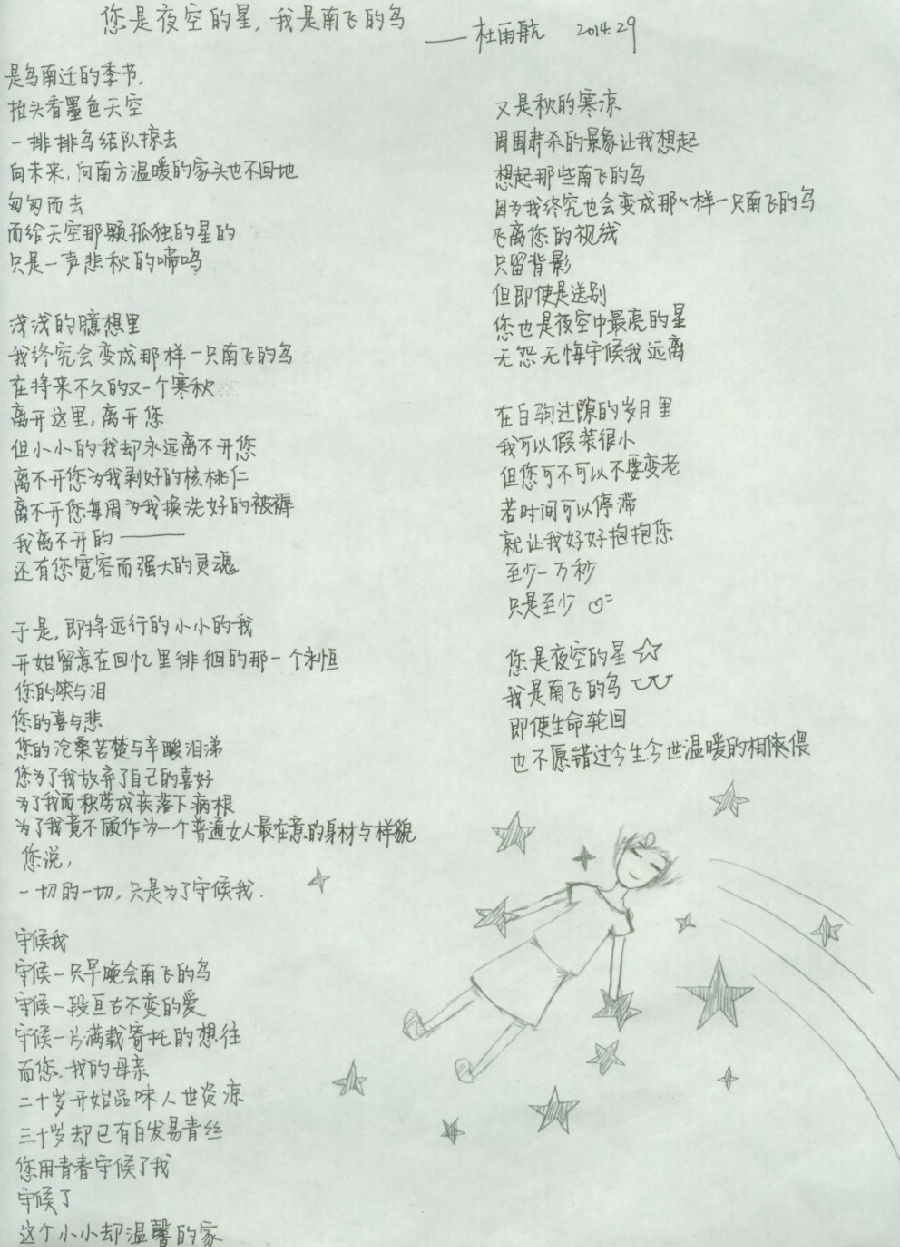 您是夜空的星，我是南飞的鸟
——杜雨航 2014.2.9
是鸟南迁的季节，
抬头看墨色天空
一排排鸟结队掠去
向未来，向南方温暖的家头也不回地
匆匆而去
而给天空那颗孤独的星的
只是一声悲秋的啼鸣
浅浅的臆想里
我终究会变成那样一只南飞的鸟
在将来不久的又一个寒秋
离开这里，离开您
但小小的我却永远离不开您
离不开您为我剥好的核桃仁
离不开您每周为我换洗好的被褥
我离不开的——
还有您宽容而强大的灵魂
于是，即将远行的小小的我
开始留意在回忆里徘徊的那一个永恒
您的笑与泪
您的喜与悲
您的沧桑苦楚与辛酸泪涕
您为了我放弃了自己的喜好
为了我而积劳成疾落下病根
为了我竟不顾作为一个普通女人最在意的身材与样貌
您说，
一切的一切，只是为了守候我．
守候我
守候一只早晚会南飞的鸟
守候一段亘古不变的爱
守候一片满载寄托的想往
而您，我的母亲
二十岁开始品味人世炎凉
三十岁却已有白发易青丝
您用青春守候了我
守候了
这个小小却温馨的家
又是秋的寒凉
周围肃杀的景象让我想起
想起那些南飞的鸟
因为我终究也会变成那样一只南飞的鸟
飞离您的视线
只留背影
但即使是送别
您也是夜空中最亮的星
无怨无悔守候我远离
在白驹过隙的岁月里
我可以假装很小
但您可不可以不要变老
若时间可以停滞
就让我好好抱抱您
至少一万秒
只是至少
您是夜空的星
我是南飞的鸟
即使生命轮回
也不愿错过今生今世温暖的相依偎